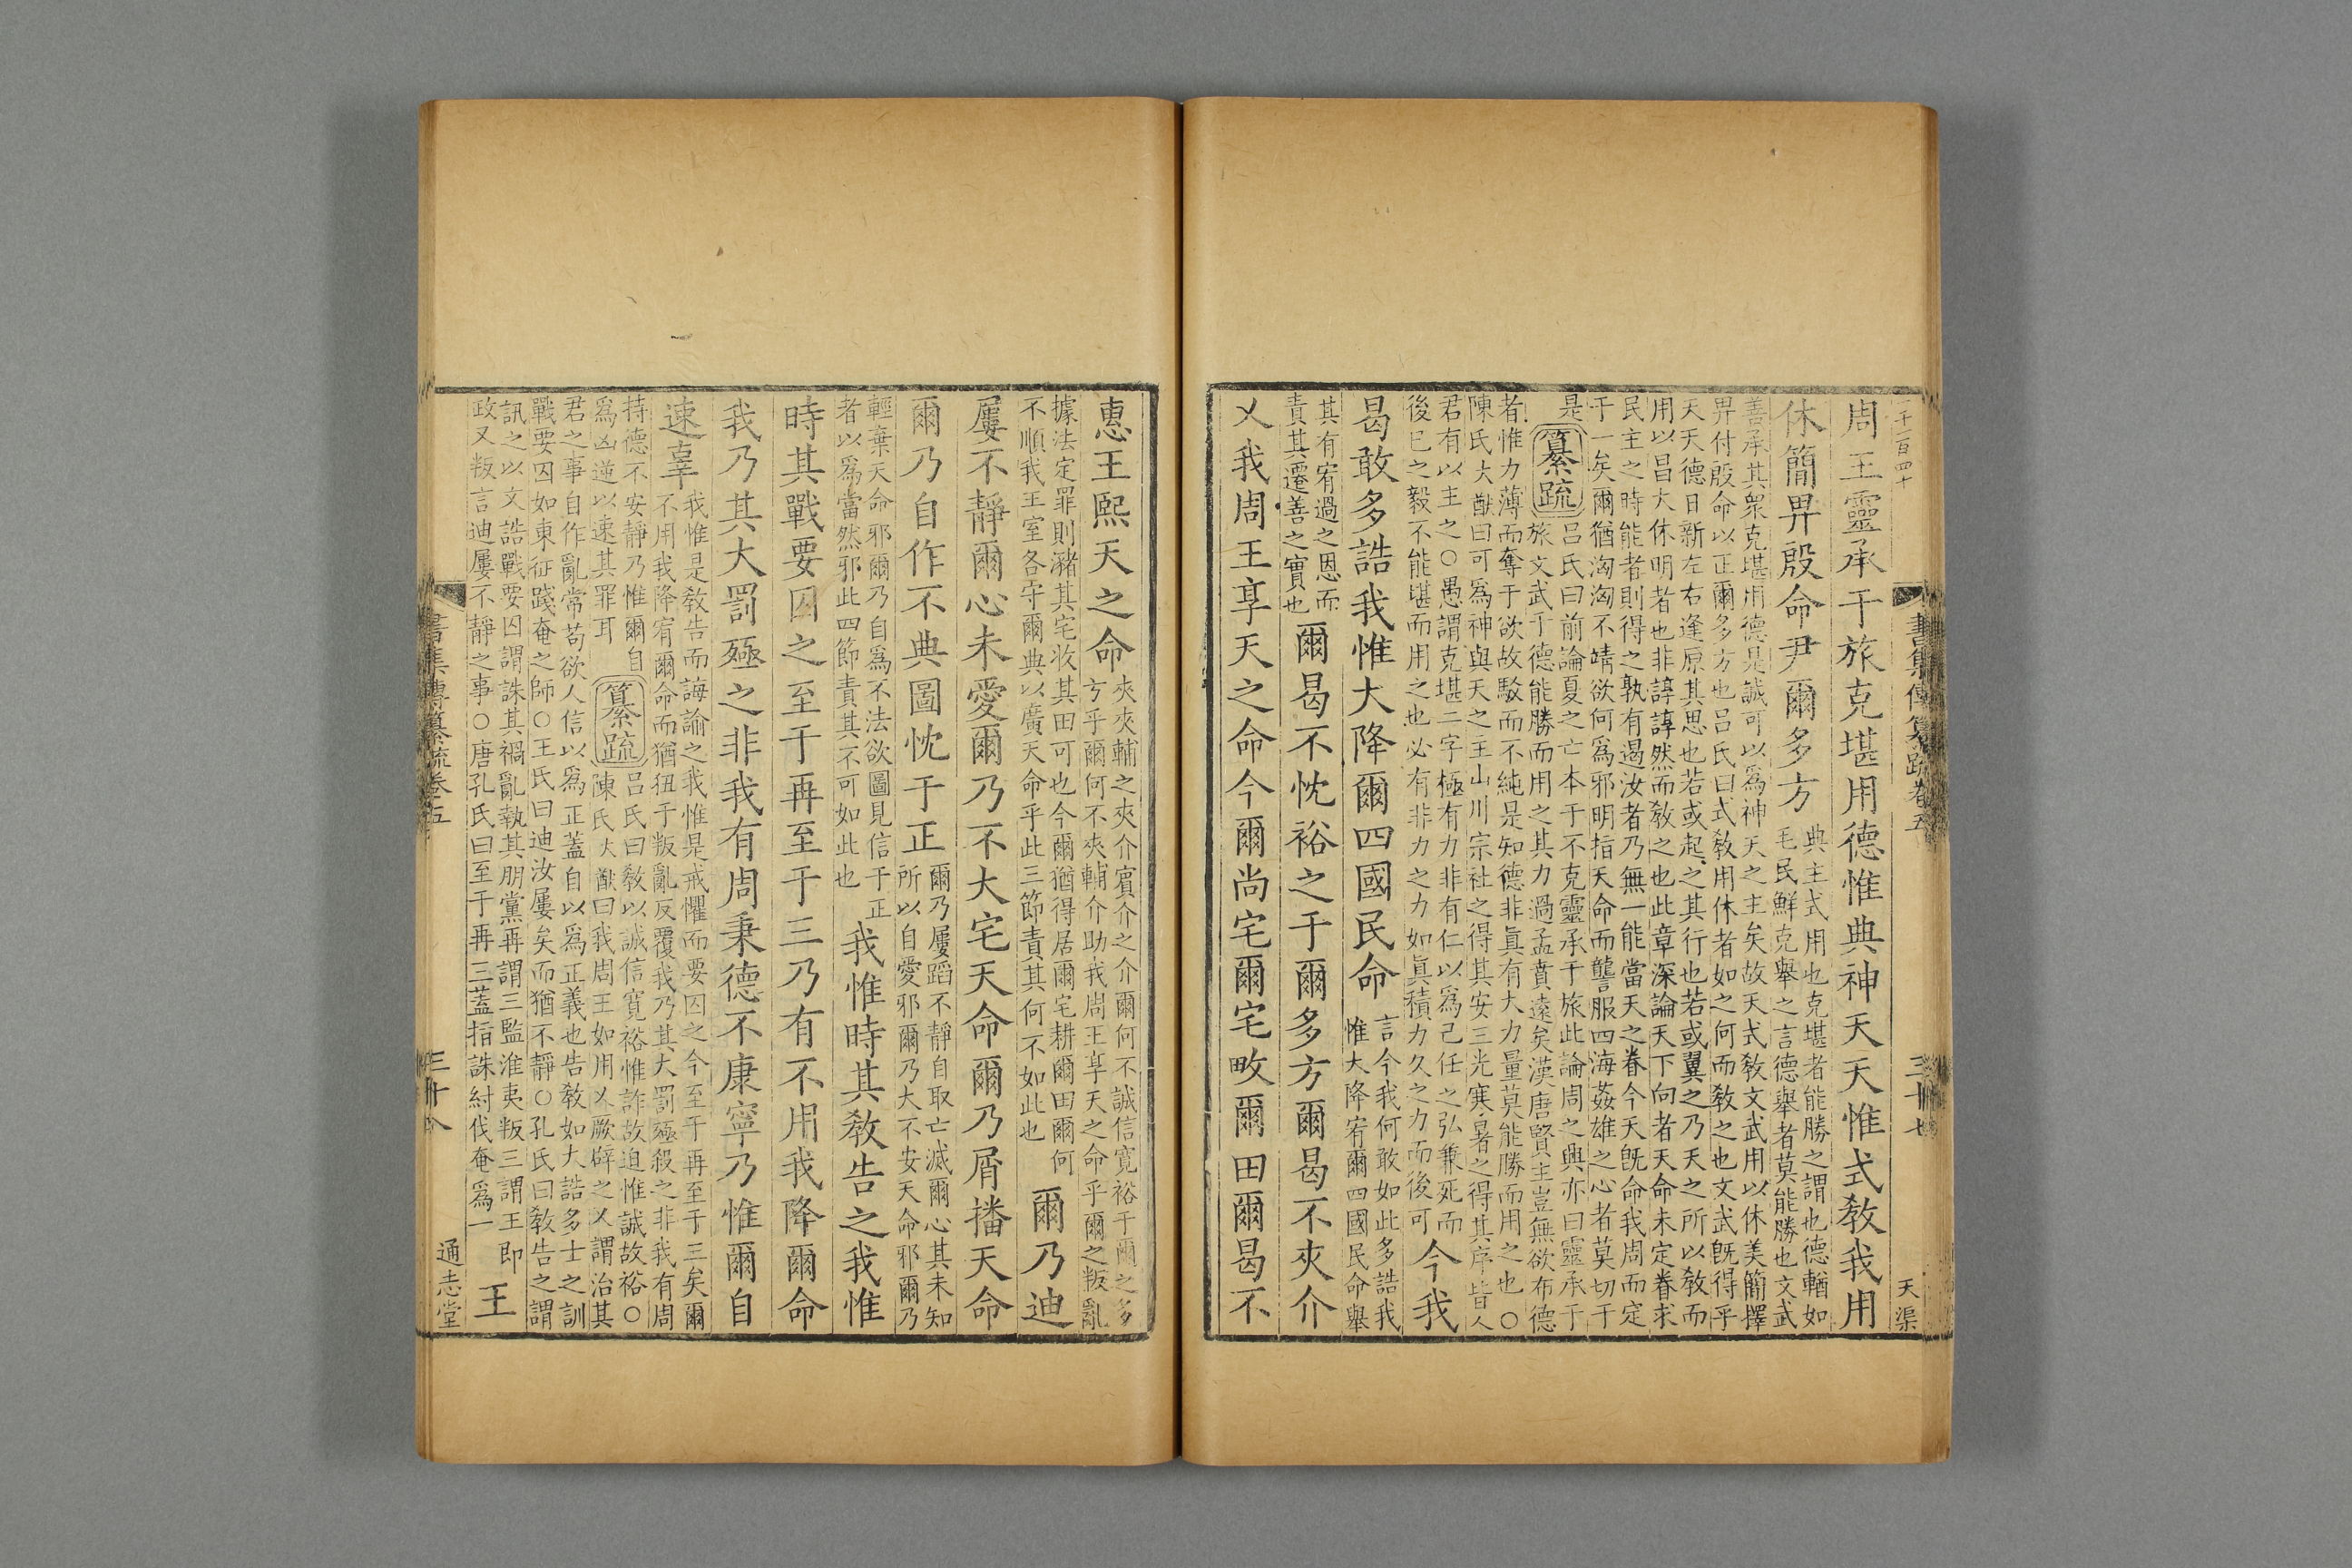 一千一百四十
書集傳纂疏卷五
三十七
天渠
周王靈承于旅克堪用德惟典神天天惟式教我用
休簡畀殷命尹爾多方
典主式用也克堪者能勝之謂也德輶如
毛民鮮克舉之言德舉者莫能勝也文武
善承其衆克堪用德是誠可以爲神天之主矣故天式教文武用以休美簡擇
畀付殷命以正爾多方也呂氏曰式教用休者如之何而教之也文武旣得乎
天天德日新左右逢原其思也若或起之其行也若或翼之乃天之所以教而
用以昌大休明者也非諄諄然而教之也此章深論天下向者天命未定眷求
民主之時能者則得之孰有遏汝者乃無一能當天之眷今天旣命我周而定
于一矣爾猶洶洶不靖欲何爲邪明指天命而讋服四海姦雄之心者莫切于
是
纂疏
呂氏曰前論夏之亡本于不克靈承于旅此論周之興亦曰靈承于
旅文武于德能勝而用之其力過孟賁遠矣漢唐賢主豈無欲布德
者惟力薄而奪于欲故駁而不純是知德非眞有大力量莫能勝而用之也○
陳氏大猷曰可爲神與天之主山川宗社之得其安三光寒暑之得其序皆人
君有以主之○愚謂克堪二字極有力非有仁以爲己任之弘兼死而
後已之毅不能堪而用之也必有非力之力如眞積力久之力而後可
今我
曷敢多誥我惟大降爾四國民命
言今我何敢如此多誥我
惟大降宥爾四國民命舉
其有宥過之恩而
責其遷善之實也
爾曷不忱裕之于爾多方爾曷不夾介
乂我周王享天之命今爾尚宅爾宅畋爾田爾曷不
惠王熙天之命
夾夾輔之夾介賓介之介爾何不誠信寬裕于爾之多
方乎爾何不夾輔介助我周王享天之命乎爾之叛亂
據法定罪則瀦其宅收其田可也今爾猶得居爾宅耕爾田爾何
不順我王室各守爾典以廣天命乎此三節責其何不如此也
爾乃迪
屢不靜爾心未愛爾乃不大宅天命爾乃屑播天命
爾乃自作不典圖忱于正
爾乃屢蹈不靜自取亡滅爾心其未知
所以自愛邪爾乃大不安天命邪爾乃
輕棄天命邪爾乃自爲不法欲圖見信于正
者以爲當然邪此四節責其不可如此也
我惟時其教告之我惟
時其戰要囚之至于再至于三乃有不用我降爾命
我乃其大罰殛之非我有周秉德不康寧乃惟爾自
速辜
我惟是教告而誨諭之我惟是戒懼而要囚之今至于再至于三矣爾
不用我降宥爾命而猶狃于叛亂反覆我乃其大罰殛殺之非我有周
持德不安靜乃惟爾自
爲凶逆以速其罪耳
纂疏
呂氏曰教以誠信寬裕惟詐故迫惟誠故裕○
陳氏大猷曰我周王如用乂厥辟之乂謂治其
君之事自作亂常苟欲人信以爲正蓋自以爲正義也告教如大誥多士之訓
戰要囚如東征踐奄之師○王氏曰迪汝屢矣而猶不靜○孔氏曰教告之謂
訊之以文誥戰要囚謂誅其禍亂執其朋黨再謂三監淮夷叛三謂王即
政又叛言迪屢不靜之事○唐孔氏曰至于再三蓋指誅紂伐奄爲一
王
書集傳纂疏卷五
三十八
通志堂